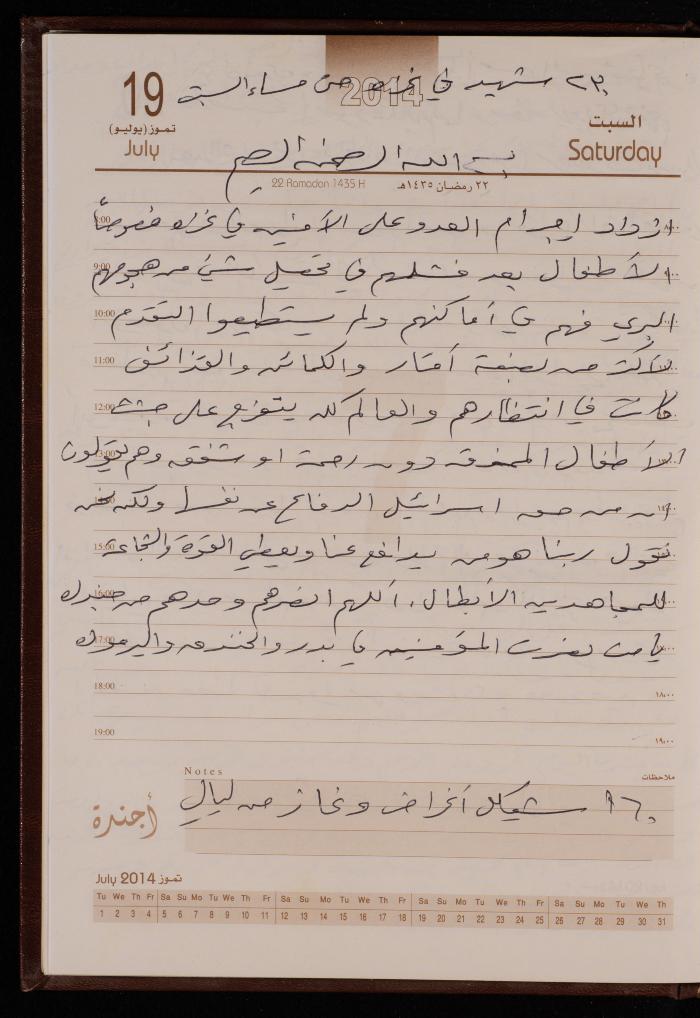 ٢٣٠ شهيد في غزة حتى مساء السبت
2014
19
تموز (يوليو)
July
السبت
Saturday
بسم الله الرحمن الرحيم
22 Ramadan 1435 H
٢٢ رمضان ١٤٣٥هـ
ازداد إجرام العدو على الآمنين في غزة خصوصاً
الأطفال بعد فشلهم في تحصيل شيء من هجومهم
البري فهم في أماكنهم ولم يستطيعوا التقدم
لأكثر من بضعة أمتار والكمائن والقذائف
كانت في انتظارهم والعالم كله يتفرج على جثث
الأطفال الممزقة دون رحمة او شفقة وهم يقولون
ان من حق اسرائيل الدفاع عن نفسها ولكن نحن
نقول ربنا هو من يدافع عنا ويعطي القوة والشجاعة
للمجاهدين الأبطال. اللهم انصرهم ومدهم من جندك
يا من نصرت المؤمنين في بدر والخندق واليرموك
8:00
9:00
10:00
11:00
12:00
13:00
15:00
16:00
17:00
18:00 ١٨،٠٠
19:00 ١٩،٠٠
Notes ملاحظات
١٦٠ شيكل أغراض وغاز من ليالي
أجندة
July 2014 تموز
Tu We Th Fr Sa Su Mo Tu We Th Fr Sa Su Mo Tu We Th Fr Sa Su Mo Tu We Th Fr Sa Su Mo Tu We Th
1 2 3 4 5 6 7 8 9 10 11 12 13 14 15 16 17 18 19 20 21 22 23 24 25 26 27 28 29 30 31